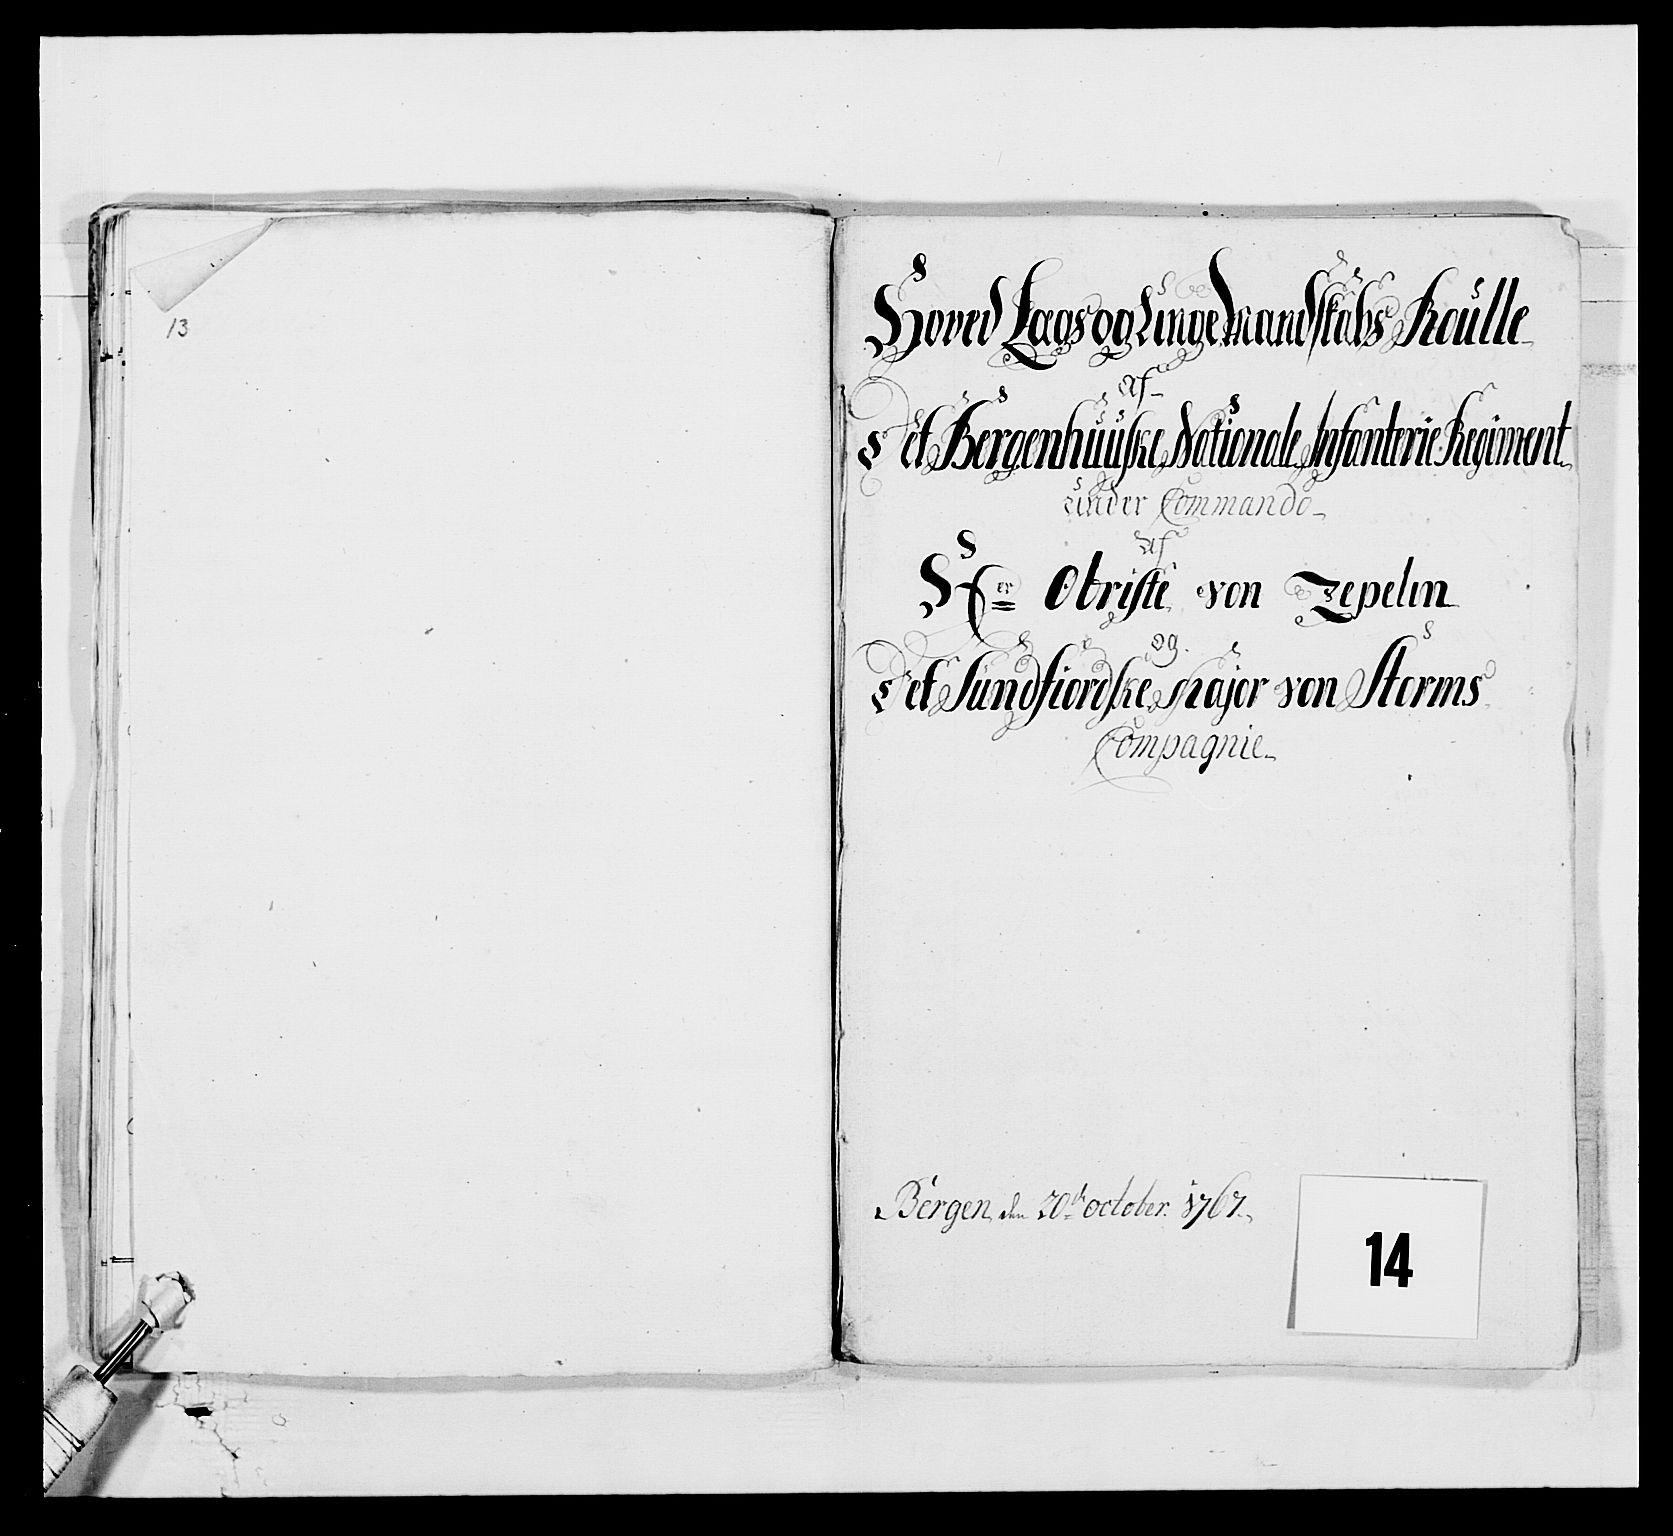 13
Hoved Lags og Unge Mandskabs Roulle
Af
Det Bergenhuuske Nationale Infanterie Regiment
under Commando
Af
Hr Obriste von Zepelin
og
Det Sundfiordske Major von Storms
Compagnie
Bergen den 20de october 1767
14